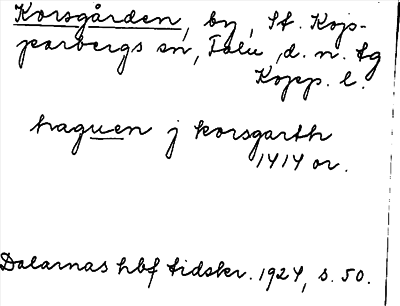 Korsgården, by, St. Kop-
parbergs sn, Falu, d. n. tg
Kopp. l.
haguen j korsgarth
1414 or.
Dalarnas hbf tidskr. 1924, s. 50.